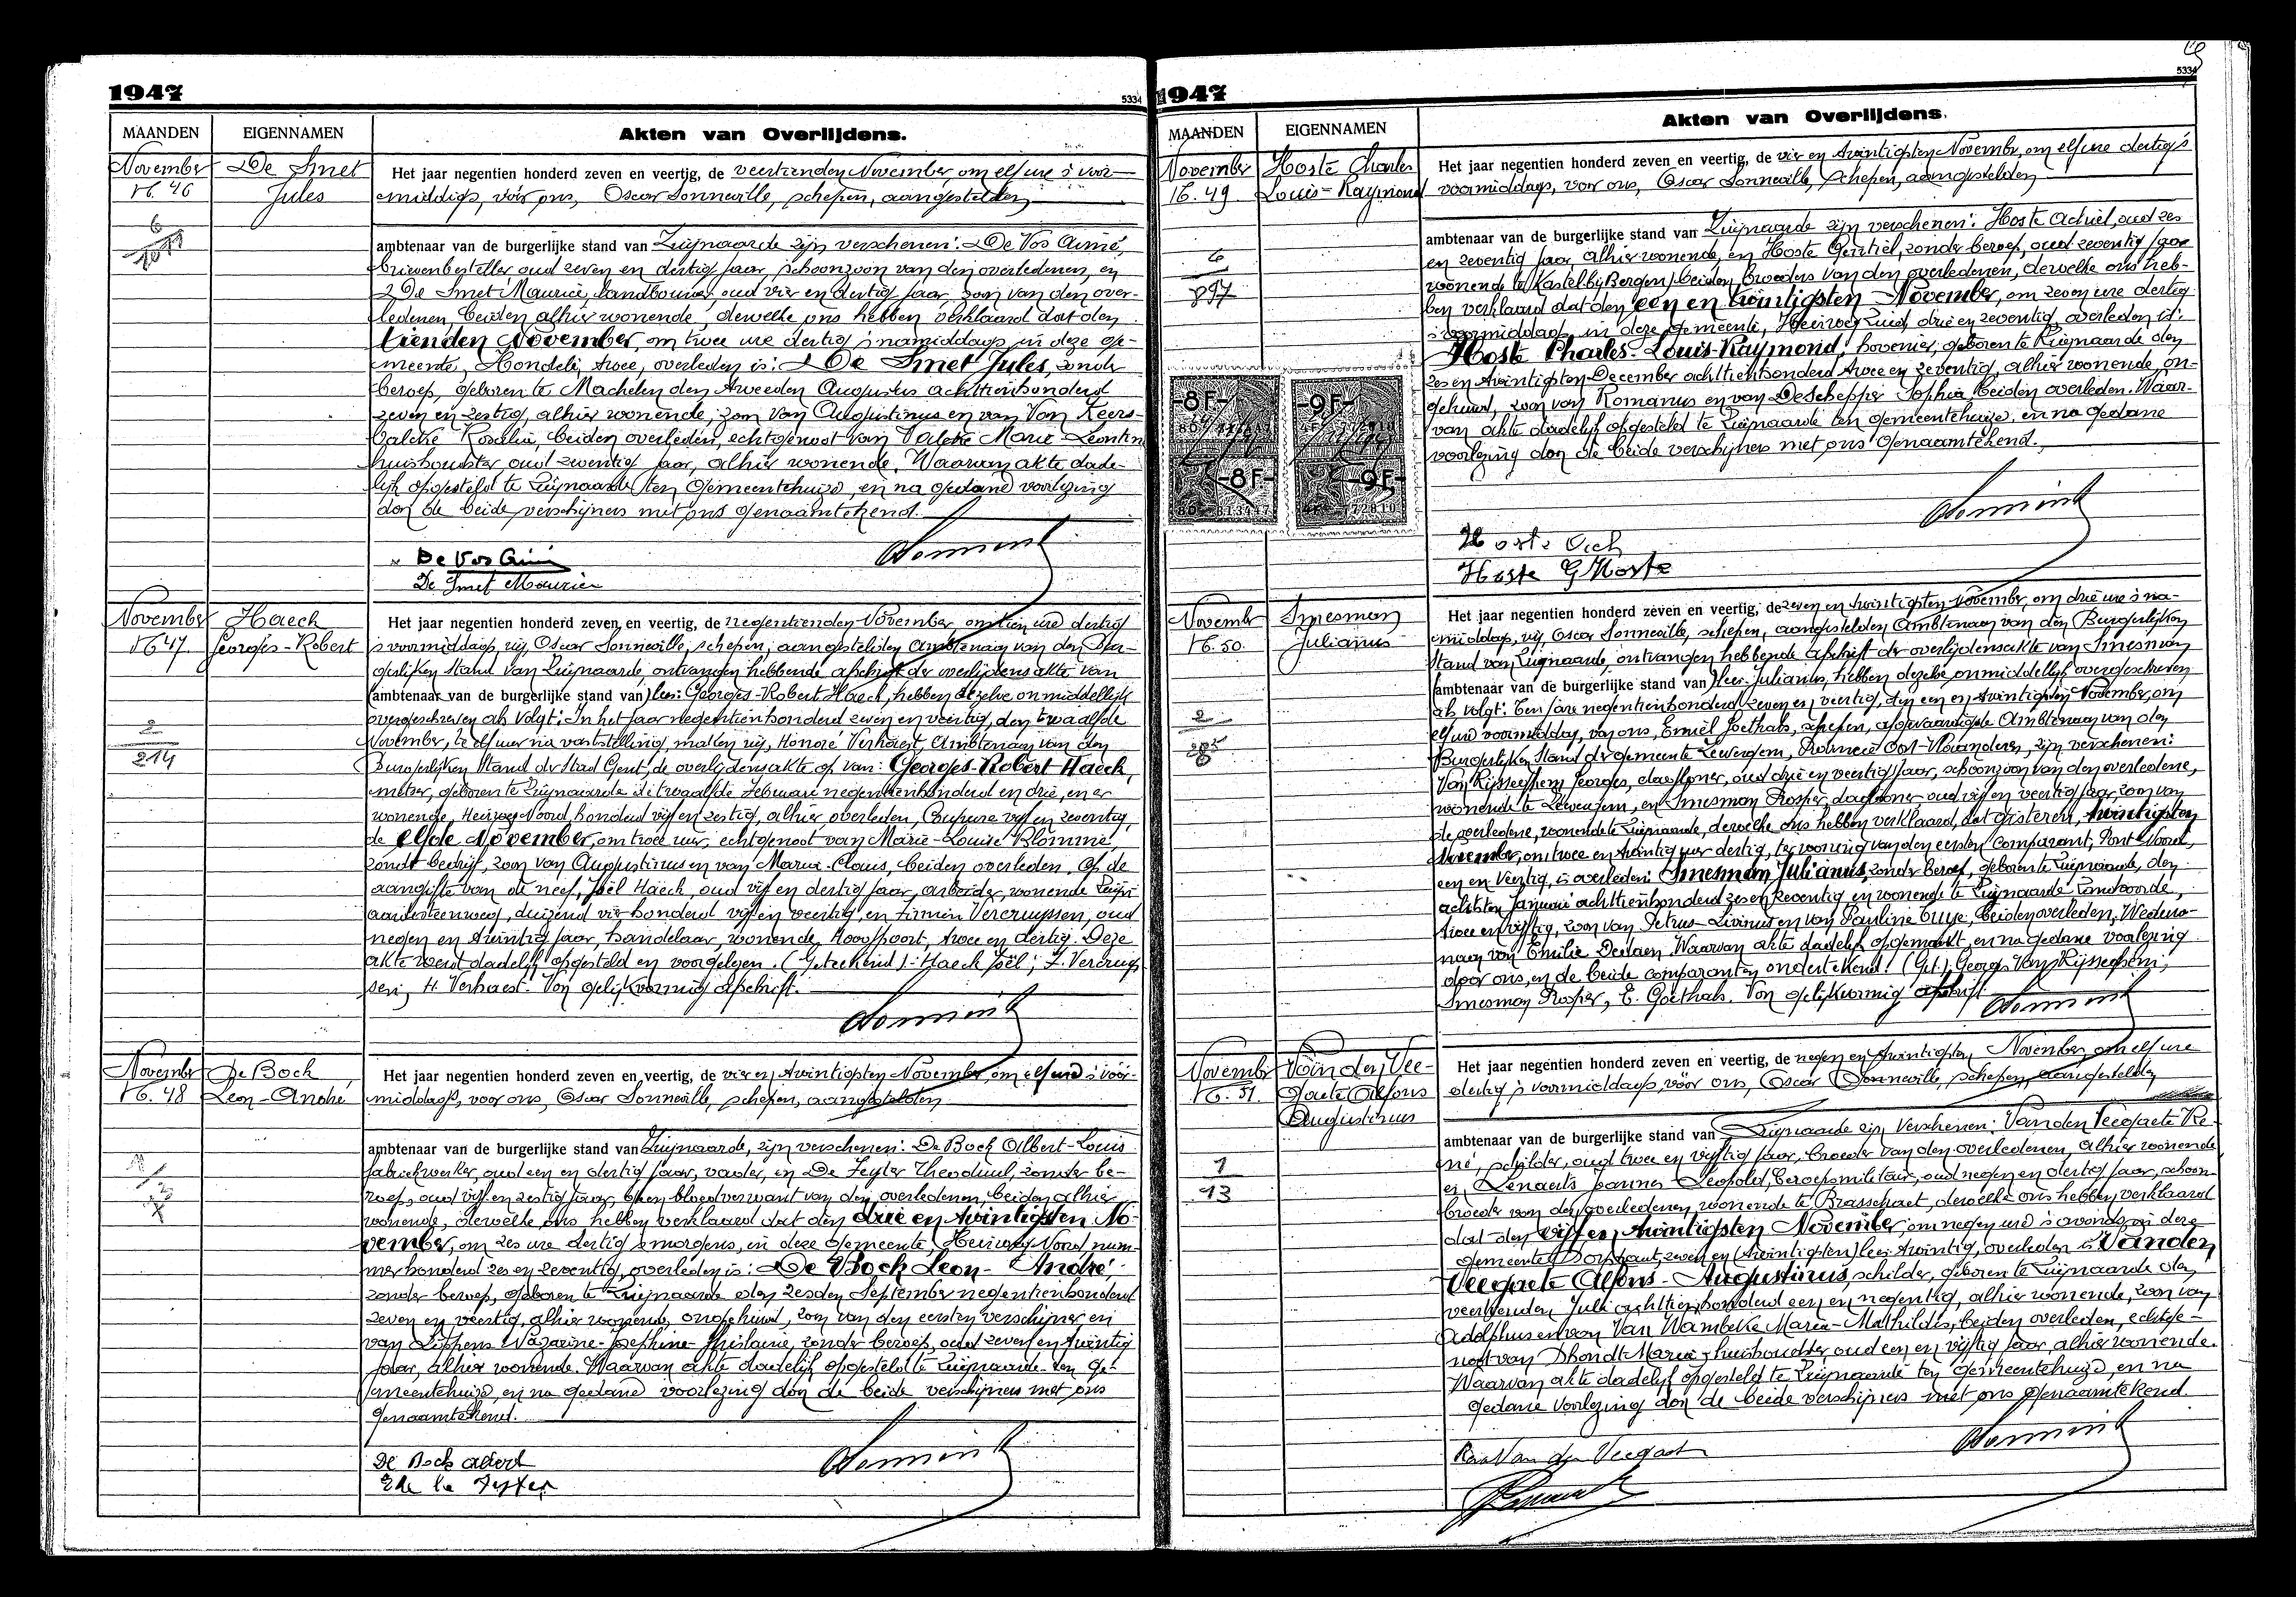 1947
5334
MAANDEN
EIGENNAMEN
Akten van Overlijdens.
November
N. 46
De Smet
Jules
Het jaar negentien honderd zeven en veertig, de veertienden November, om elf ure 's voor-
middags, vóór ons, Oscar Sonneville, schepen, aangestelden
ambtenaar van de burgerlijke stand van Zwijnaarde zijn verschenen: De Vos Aimé,
brievenbesteller oud zeven en dertig jaar, schoonzoon van den overledenen, en
De Smet Maurice, landbouwer, oud vier en dertig jaar, zoon van den over-
ledenen, beiden alhier wonende, dewelke ons hebben verklaard dat den
tienden November, om twee ure dertig 's namiddags in deze ge-
meente, Hondelé, twee, overleden is: De Smet Jules, zonder
beroep, geboren te Machelen den tweeden Augustus achttienhonderd
zeven en zestig, alhier wonende, zoon van Augustinus en van Van Keers-
balcke Rosalia, beiden overleden, echtgenoot van Valcke Marie-Leontine
huishoudster oud zeventig jaar, alhier wonende. Waarvan akte dade-
lijk opgesteld te Zwijnaarde ten gemeentehuize, en na gedane voorlezing
don de beide verschijners met ons genaamtekend.
De Vos Aimé
De Smet Maurice
November
N. 47
Haeck
Georges-Robert
2
214
Het jaar negentien honderd zeven en veertig, de negentienden November, om tien ure dertig
's voormiddags, wij, Oscar Sonneville, schepen, aangestelden Ambtenaar van den Bur-
gerlijken Stand van Zwijnaarde, ontvangen hebbende afschrift der overlijdensakte van
(ambtenaar van de burgerlijke stand van) lees: Georges-Robert Haeck, hebben dezelve onmiddellijk
overgeschreven als volgt: In het jaar negentienhonderd zeven en veertig, den twaalfde
November, te elf uur na vaststelling, maken wij, Honoré Verhaest, Ambtenaar van den
Burgerlijken Stand der Stad Gent, de overlijdensakte op van: Georges-Robert Haeck,
metser, geboren te Zwijnaarde de twaalfde Februari negentienhonderd en drie, en er
wonende, Heirweg Noord, honderd vijf en zestig, alhier overleden, Coupure vijf en zeventig,
de elfde November, om twee uur, echtgenoot van Marie-Louise Blomme,
zonder bedrijf, zoon van Augustinus en van Maria Claus, beiden overleden. Op de
aangifte van de neef, Joël Haeck, oud vijf en dertig jaar, arbeider, wonende Zwijn-
aardesteenweg, duizend vier honderd vijf en veertig, en Firmin Vercruyssen, oud
negen en twintig jaar, handelaar, wonende, Hoofdpoort, twee en dertig. Deze
akte werd dadelijk opgesteld en voorgelezen. (Geteekend): Haeck Joël; F. Vercruys-
sen; H. Verhaest. Von gelijkvormig afschrift.
November
N. 48
De Bock
Leon-André
Het jaar negentien honderd zeven en veertig, de vier en twintigsten November, om elf ure 's voor-
middags, voor ons, Oscar Sonneville, schepen, aangestelden
ambtenaar van de burgerlijke stand van Zwijnaarde, zijn verschenen: De Bock Albert-Louis
fabriekwerker, oud een en dertig jaar, vader, en De Zeyter Theodul, zonder be-
roep, oud vijf en zestig jaar, geen bloedverwant van den overledenen, beiden alhier
wonende, dewelke ons hebben verklaard dat den drie en twintigsten No-
vember, om zes ure dertig 's morgens, in deze gemeente, Heirweg Noord num-
mer honderd zes en zeventig, overleden is: De Bock Leon-André
zonder beroep, geboren te Zwijnaarde den zesden September negentienhonderd
zeven en veertig, alhier wonende, ongehuwd, zoon van den eersten verschijner en
van Lippens Nazarine-Josephine-Ghislaine, zonder beroep, oud zeven en twintig
jaar, alhier wonende. Waarvan akte dadelijk opgesteld te Zwijnaarde ten ge-
meentehuize, en na gedane voorlezing don de beide verschijners met ons
genaamtekend.
De Bock Albert
1947
5334
MAANDEN
EIGENNAMEN
Akten van Overlijdens.
November
N. 49
Hoste Charles
Louis-Raymond
6
897
-8F-
-9F-
-8F-
-9F-
Het jaar negentien honderd zeven en veertig, de vier en twintigsten November, om elf ure dertig 's
voormiddags, voor ons, Oscar Sonneville, schepen, aangestelden
ambtenaar van de burgerlijke stand van Zwijnaarde zijn verschenen: Hoste Achiel, oud zes
en zeventig jaar, alhier wonende, en Hoste Gentiel, zonder beroep, oud zeventig jaar
wonende te Kastel bij Bergen, beiden broeders van den overledenen, dewelke ons heb-
ben verklaard dat den een en twintigsten November, om zeven ure dertig
's voormiddags, in deze gemeente, Heirweg Zuid, drie en zeventig, overleden is:
Hoste Charles-Louis-Raymond, hovenier, geboren te Zwijnaarde den
zes en twintigsten December achttienhonderd twee en zeventig, alhier wonende, on-
gehuwd, zoon van Romanus en van De Schepper Sophia, beiden overleden. Waar-
van akte dadelijk opgesteld te Zwijnaarde ten gemeentehuize, en na gedane
voorlezing don de beide verschijners met ons genaamtekend.
Hoste Ach
Hoste G Hoste
November
N. 50
Smesman
Julianus
2
Het jaar negentien honderd zeven en veertig, de zeven en twintigsten November, om drie ure 's na-
middags, wij, Oscar Sonneville, schepen, aangestelden Ambtenaar van den Burgerlijken
Stand van Zwijnaarde, ontvangen hebbende afschrift der overlijdensakte van Smesman
(ambtenaar van de burgerlijke stand van) lees: Julianus, hebben dezelve onmiddellijk overgeschreven
als volgt: Ten jare negentienhonderd zeven en veertig, den een en twintigsten November, om
elf ure voormiddag, voor ons, Emiel Goethals, schepen, afgevaardigde Ambtenaar van den
Burgerlijken Stand der gemeente Zevergem, Provincie Oost-Vlaanderen, zijn verschenen:
Van Rijsseghem Georges, dagloner, oud drie en veertig jaar, schoonzoon van den overledene,
wonende te Zevergem, en Smesman Prosper, dagloner, oud vijf en veertig jaar, zoon van
de overledene, wonende te Zwijnaarde, dewelke ons hebben verklaard, dat gisteren, twintigsten
November, om twee en twintig uur dertig, ter woning van den eersten comparant, Pont Noord,
een en veertig, is overleden: Smesman Julianus, zonder beroep, geboren te Zwijnaarde, den
achtsten Januari achttienhonderd zes en zeventig en wonende te Zwijnaarde Tandvoorde,
twee en vijftig, zoon van Petrus-Livinus en van Pauline Buye, beiden overleden, Weduw-
naar van Emilie Dedaen. Waarvan akte dadelijk opgemaakt, en na gedane voorlezing
door ons, en de beide comparanten ondertekend. (Get.) Georges Van Rijsseghem;
Smesman Prosper, E. Goethals. Von gelijkvormig afschrift
November
N. 51
Van den Vee-
gaete Alfons
Augustinus
1
13
Het jaar negentien honderd zeven en veertig, de negen en twintigsten November, om elf ure
dertig 's voormiddags, vóór ons, Oscar Sonneville, schepen, aangestelden
ambtenaar van de burgerlijke stand van Zwijnaarde zijn verschenen: Van den Veegaete Re-
né, schilder, oud twee en vijftig jaar, broeder van den overledenen, alhier wonende
en Lenaerts Joannes Leopold, beroepsmilitair, oud negen en dertig jaar, schoon-
broeder van den overledenen, wonende te Brasschaet, dewelke ons hebben verklaard
dat den vijf en twintigsten November, om negen ure 's avonds in deze
gemeente, Dorpkant, zeven en (twintigsten) lees: twintig, overleden is Van den
Veegaete Alfons-Augustinus, schilder, geboren te Zwijnaarde den
veertienden Juli achttienhonderd een en negentig, alhier wonende, zoon van
Adolphus en van Van Wambeke Maria-Mathildis, beiden overleden, echtge-
noot van Dhondt Maria, huishoudster oud een en vijftig jaar, alhier wonende.
Waarvan akte dadelijk opgesteld te Zwijnaarde ten gemeentehuize, en na
gedane voorlezing don de beide verschijners met ons genaamtekend.